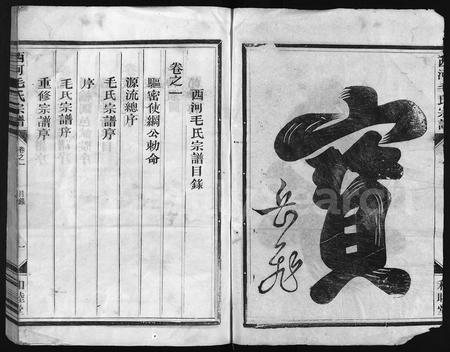 西河毛氏宗譜
寳
岳飛
和睦堂
西河毛氏宗譜目錄
卷之一
驅密使綱公勅命
源流總序
毛氏宗譜序
序
毛氏宗譜序
重修宗譜序
西河毛氏宗譜
卷之一
目錄
一
和睦堂